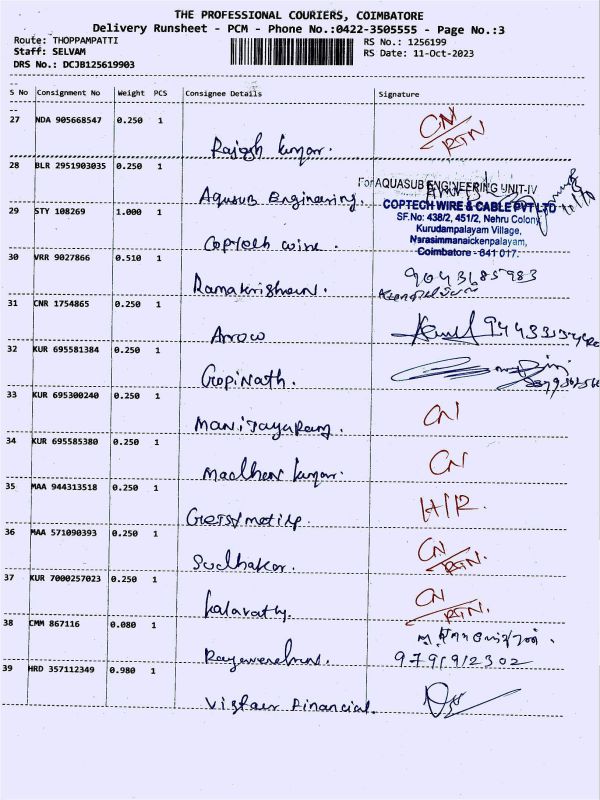 THE PROFESSIONAL COURIERS, COIMBATORE
Delivery Runsheet - PCM - Phone No.:0422-3505555 - Page No.:3
Route: THOPPAMPATTI RS No.: 1256199
Staff: SELVAM RS Date: 11-Oct-2023
DRS No.: DCJB125619903
S No Consignment No Weight PCS Consignee Details Signature
27 NDA 905668547 0.250 1 CN/RTN
Rajesh kumar.
28 BLR 2951903035 0.250 1
Aquasub Engineering. For AQUASUB ENGINEERING UNIT-IV
29 STY 108269 1.000 1 COPTECH WIRE & CABLE PVT LTD
SF.No: 438/2, 451/2, Nehru Colony
Kurudampalayam Village,
Coptech wire. Narasimmanaickenpalayam,
Coimbatore - 641 017.
30 VRR 9027866 0.510 1 9043185983
Ramakrishnan.
31 CNR 1754865 0.250 1
Arrow
32 KUR 695581384 0.250 1
Gopinath.
33 KUR 695300240 0.250 1 CN
Mani Jayaram.
34 KUR 695585380 0.250 1 CN
Madhan kumar.
35 MAA 944313518 0.250 1 H/R.
36 MAA 571090393 0.250 1 CN/RTN.
Sudhakar.
37 KUR 7000257023 0.250 1 CN/RTN.
Kalavathy
38 CMM 867116 0.080 1
9791912302
39 HRD 357112349 0.980 1
Vistaar Financial.